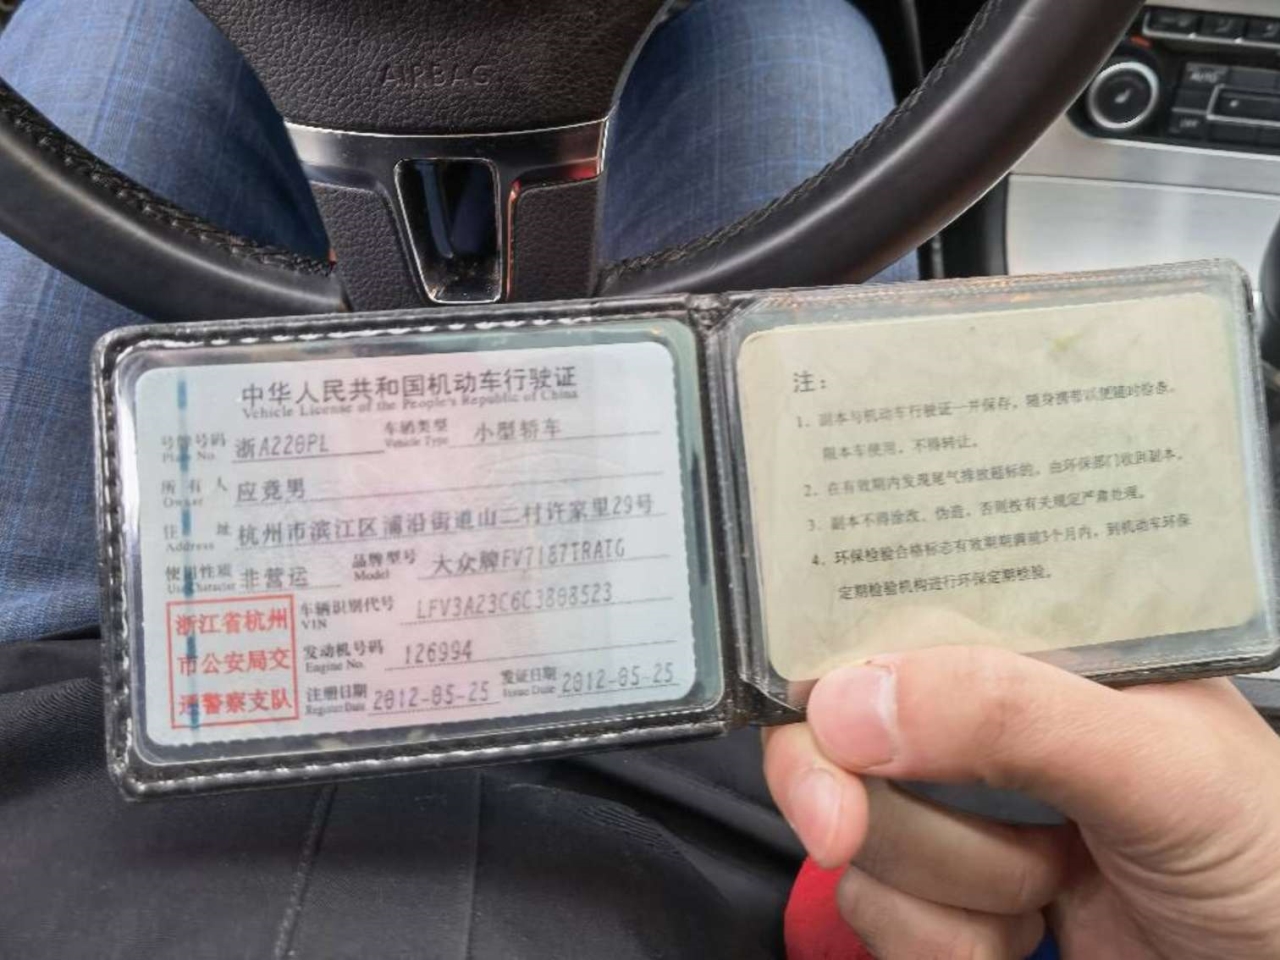 AIRBAG
AUTO
OFF
中华人民共和国机动车行驶证
Vehicle License of the People's Republic of China
号牌号码 浙A228PL 车辆类型 小型轿车
Plate No. Vehicle Type
所有人 应竟男
Owner
住址 杭州市滨江区浦沿街道山二村许家里29号
Address
使用性质 非营运 品牌型号 大众牌FV7187TRATG
Use Character Model
浙江省杭州
市公安局交
通警察支队
车辆识别代号 LFV3A23C6C3808523
VIN
发动机号码 126994
Engine No.
注册日期 2012-05-25 发证日期 2012-05-25
Register Date Issue Date
注：
1、副本与机动车行驶证一并保存，随身携带以便随时检查。
限本车使用，不得转让。
2、在有效期内发现尾气排放超标的，由环保部门收回副本。
3、副本不得涂改、伪造，否则按有关规定严肃处理。
4、环保检验合格标志有效期期满前3个月内，到机动车环保
定期检验机构进行环保定期检验。